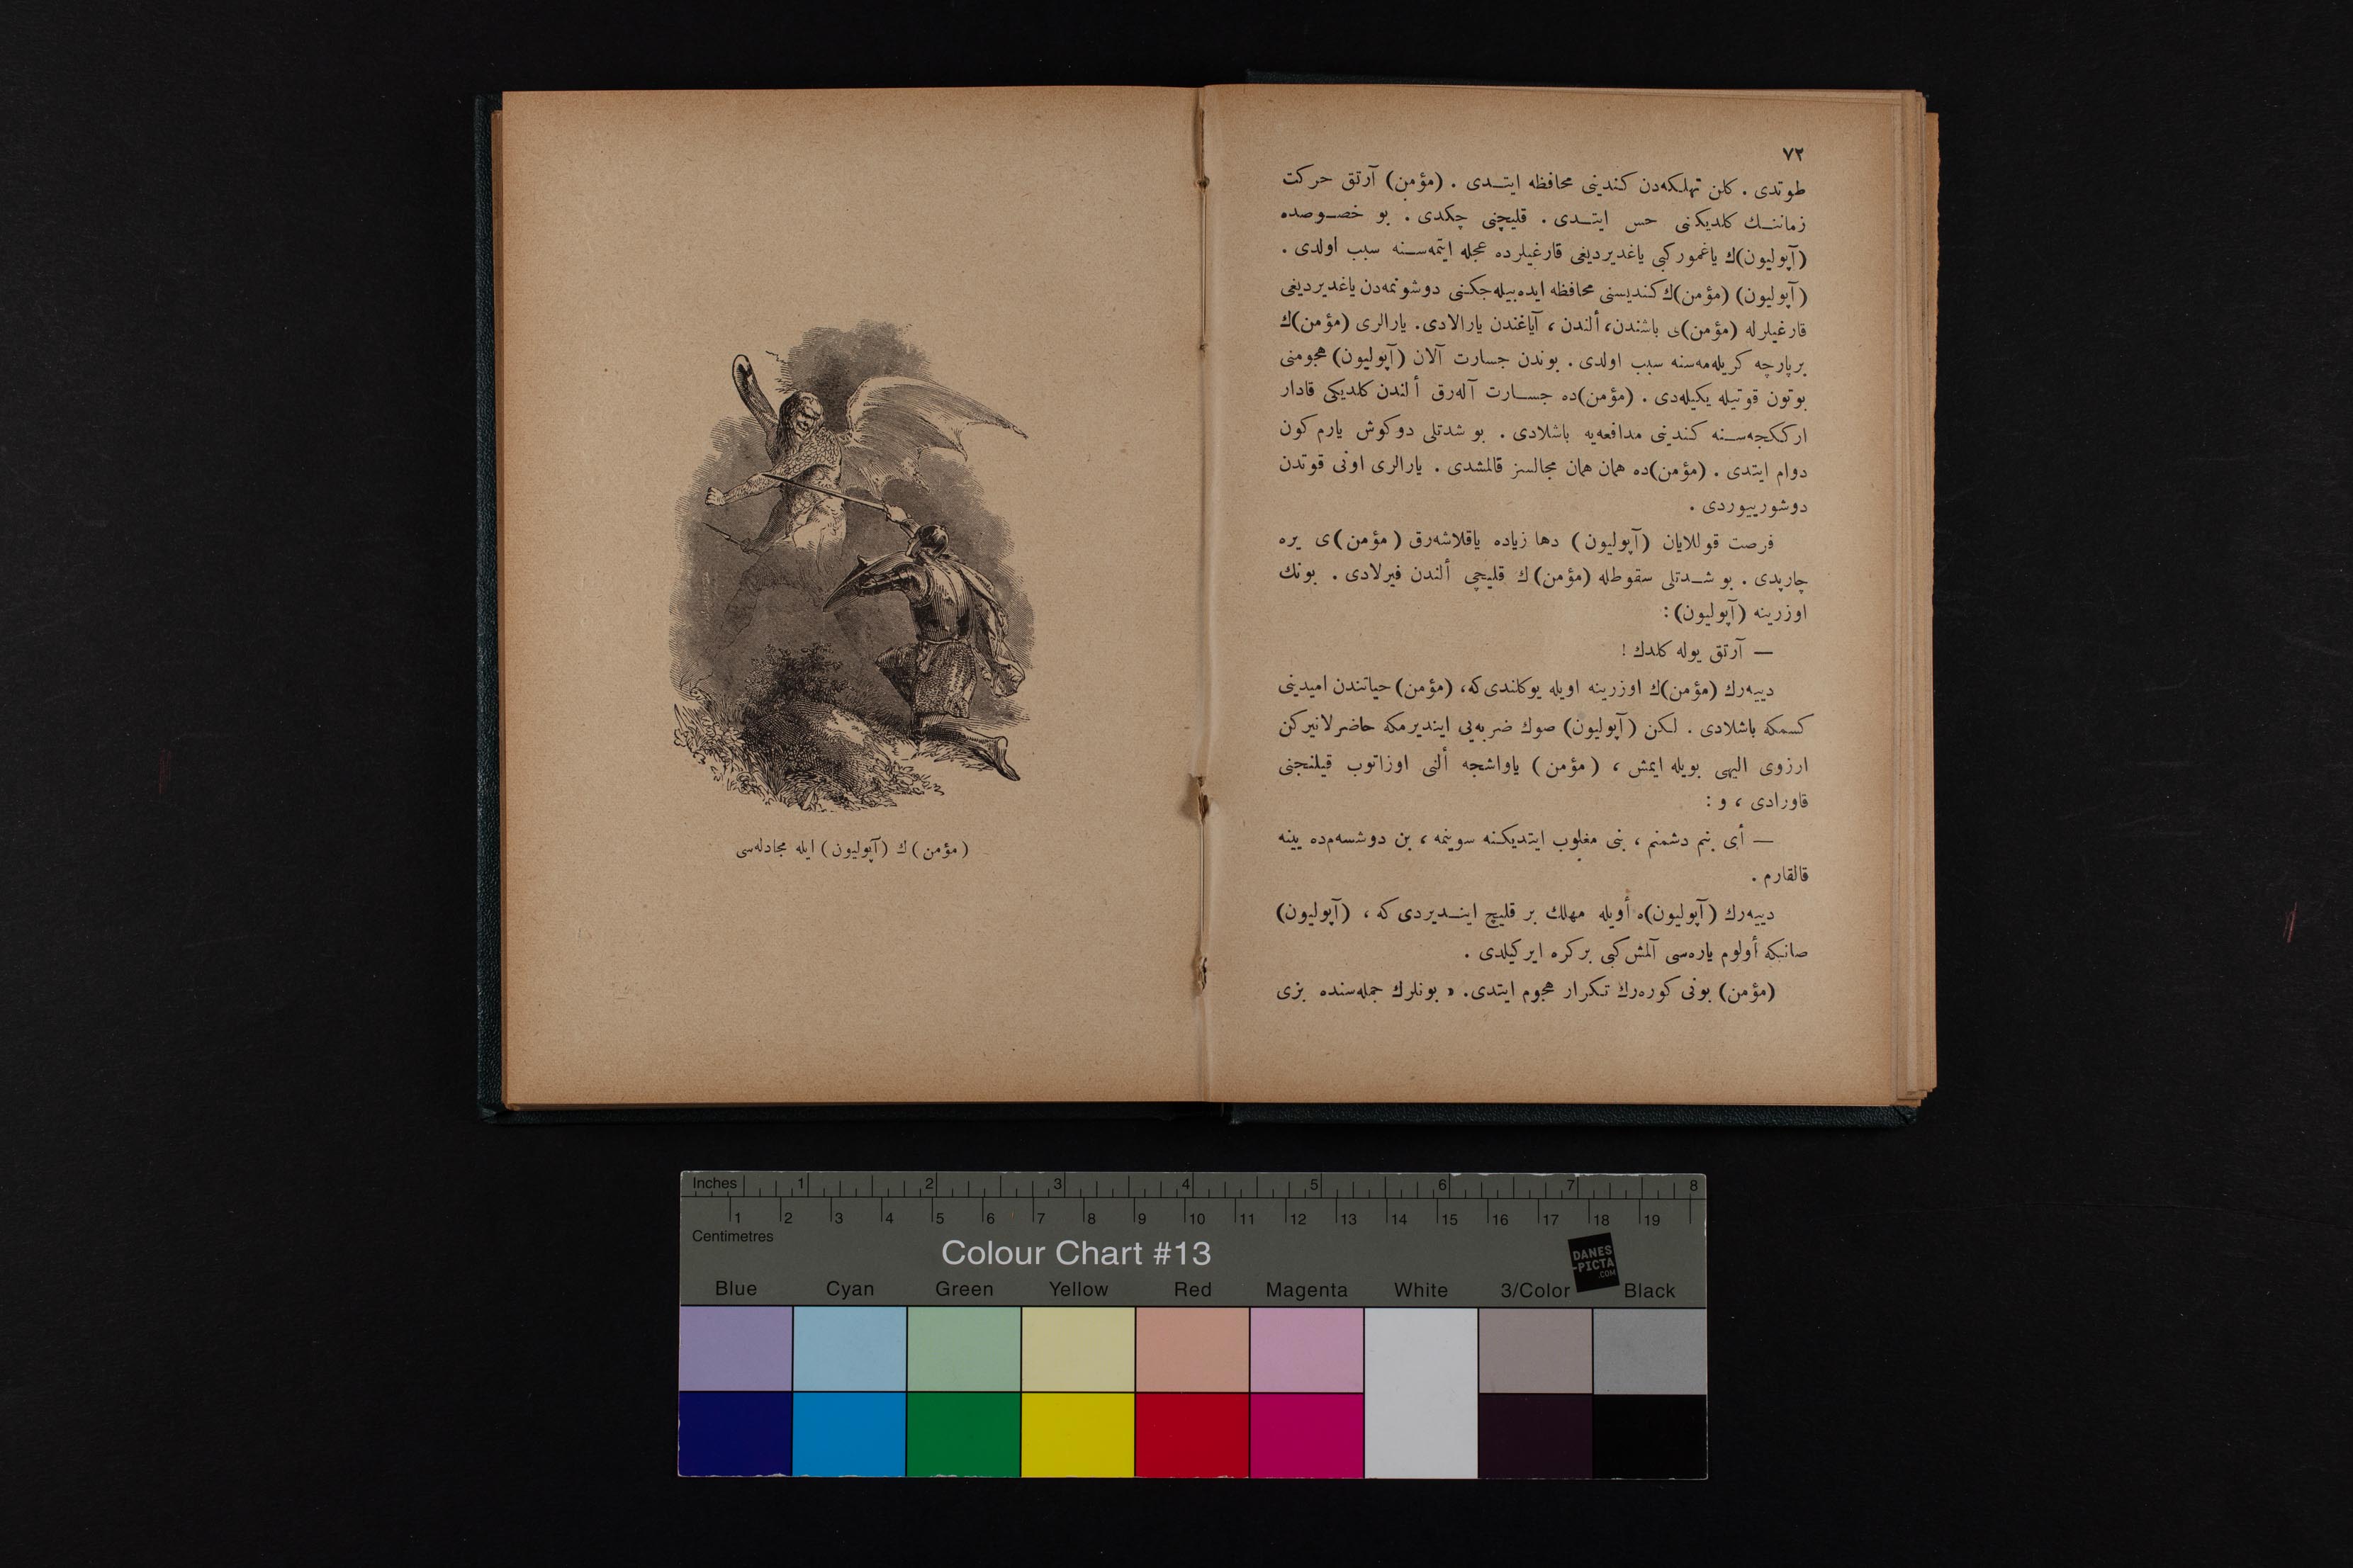 ٧٢
طوتدی . كلن تهلكه‌دن كندینی محافظه ایتـدی . (مؤمن) آرتق حركت
زماننـك كلدیكنی حس ایتـدی . قلیچنی چكدی . بو خصـوصده
(آپولیون)ك یاغمور كبی یاغدیردیغی قارغیلرده عجله ایتمه‌سـنه سبب اولدی .
(آپولیون) (مؤمن)ك كندیسنی محافظه ایده‌بیله‌جكنی دوشونمه‌دن یاغدیردیغی
قارغیلرله (مؤمن)ی باشندن، ألندن ، آیاغندن یارالادی. یارالری (مؤمن)ك
برپارچه كریله‌مه‌سنه سبب اولدی . بوندن جسارت آلان (آپولیون) هجومنی
بوتون قوتیله یكیله‌دی . (مؤمن)ده جسـارت آله‌رق ألندن كلدیكی قادار
ارككجه‌سـنه كندینی مدافعه‌یه باشلادی . بو شدتلی دوكوش یارم كون
دوام ایتدی . (مؤمن)ده همان همان مجالسز قالمشدی . یارالری اونی قوتدن
دوشورییوردی .
فرصت قوللایان (آپولیون) دها زیاده یاقلاشه‌رق (مؤمن)ی یره
چارپدی . بو شـدتلی سقوطله (مؤمن)ك قلیچی ألندن فیرلادی . بونك
اوزرینه (آپولیون):
— آرتق یوله كلدك !
دییه‌رك (مؤمن)ك اوزرینه اویله یوكلندی‌كه، (مؤمن) حیاتندن امیدینی
كسمكه باشلادی . لكن (آپولیون) صوك ضربه‌یی ایندیرمكه حاضرلانیركن
ارزوی الهی بویله ایمش ، (مؤمن) یاواشجه ألنی اوزاتوب قیلنجنی
قاورادی ، و :
— أی بنم دشمنم ، بنی مغلوب ایتدیكنه سوینمه ، بن دوشسه‌م‌ده یینه
قالقارم .
دییه‌رك (آپولیون)ه أویله مهلك بر قلیچ اینـدیردی كه ، (آپولیون)
صانكه أولوم یاره‌سی آلمش كبی بركره ایركیلدی .
(مؤمن) بونی كوره‌رك تكرار هجوم ایتدی. « بونلرك جمله‌سنده بزی
(مؤمن)ك (آپولیون) ایله مجادله‌سی
Inches 1 2 3 4 5 6 7 8
1 2 3 4 5 6 7 8 9 10 11 12 13 14 15 16 17 18 19
Centimetres
Colour Chart #13
DANES
-PICTA
.COM
Blue Cyan Green Yellow Red Magenta White 3/Color Black